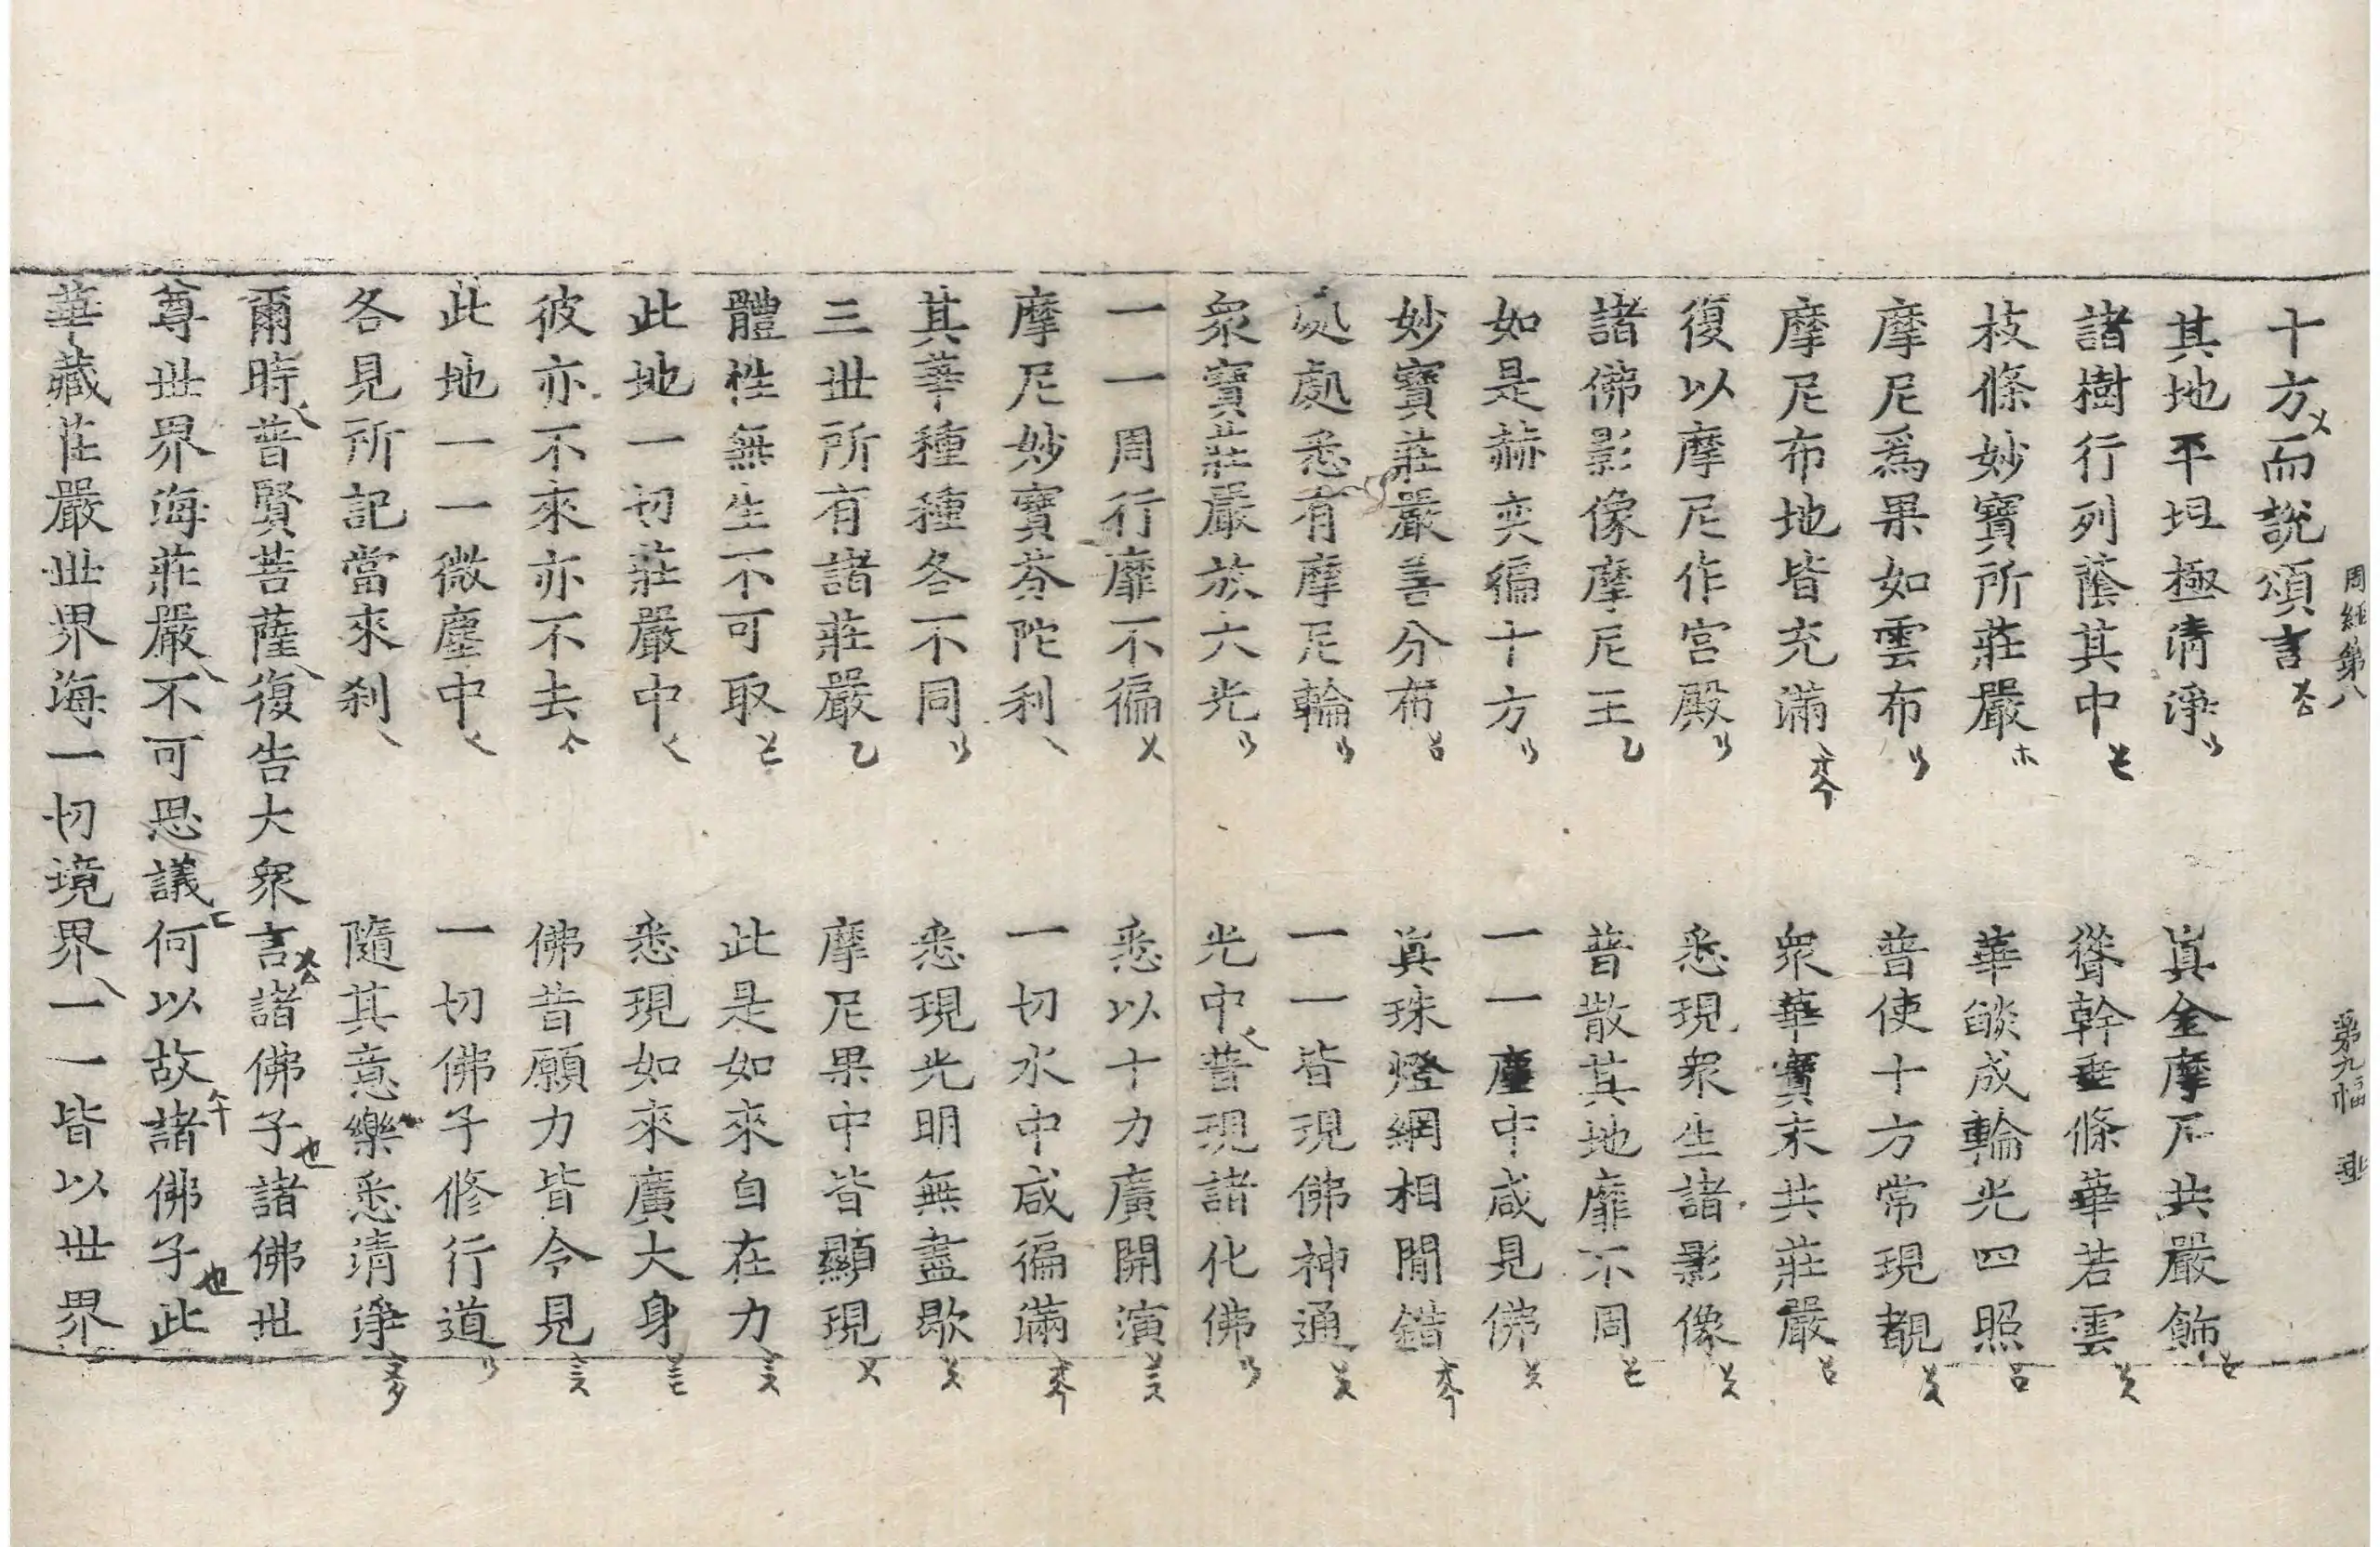 周經第八　第九幅　垂
十方而說頌言
其地平坦極清淨　真金摩尼共嚴飾
諸樹行列蔭其中　聳幹垂條華若雲
枝條妙寶所莊嚴　華燄成輪光四照
摩尼爲果如雲布　普使十方常現覩
摩尼布地皆充滿　衆華寶末共莊嚴
復以摩尼作宮殿　悉現衆生諸影像
諸佛影像摩尼王　普散其地靡不周
如是赫奕徧十方　一一塵中咸見佛
妙寶莊嚴善分布　真珠燈網相間錯
處處悉有摩尼輪　一一皆現佛神通
衆寶莊嚴放大光　光中普現諸化佛
一一周行靡不徧　悉以十力廣開演
摩尼妙寶芬陀利　一切水中咸徧滿
其華種種各不同　悉現光明無盡歇
三世所有諸莊嚴　摩尼果中皆顯現
體性無生不可取　此是如來自在力
此地一切莊嚴中　悉現如來廣大身
彼亦不來亦不去　佛昔願力皆令見
此地一一微塵中　一切佛子修行道
各見所記當來刹　隨其意樂悉清淨
爾時普賢菩薩復告大衆言諸佛子諸佛世
尊世界海莊嚴不可思議何以故諸佛子此
華藏莊嚴世界海一切境界一一皆以世界